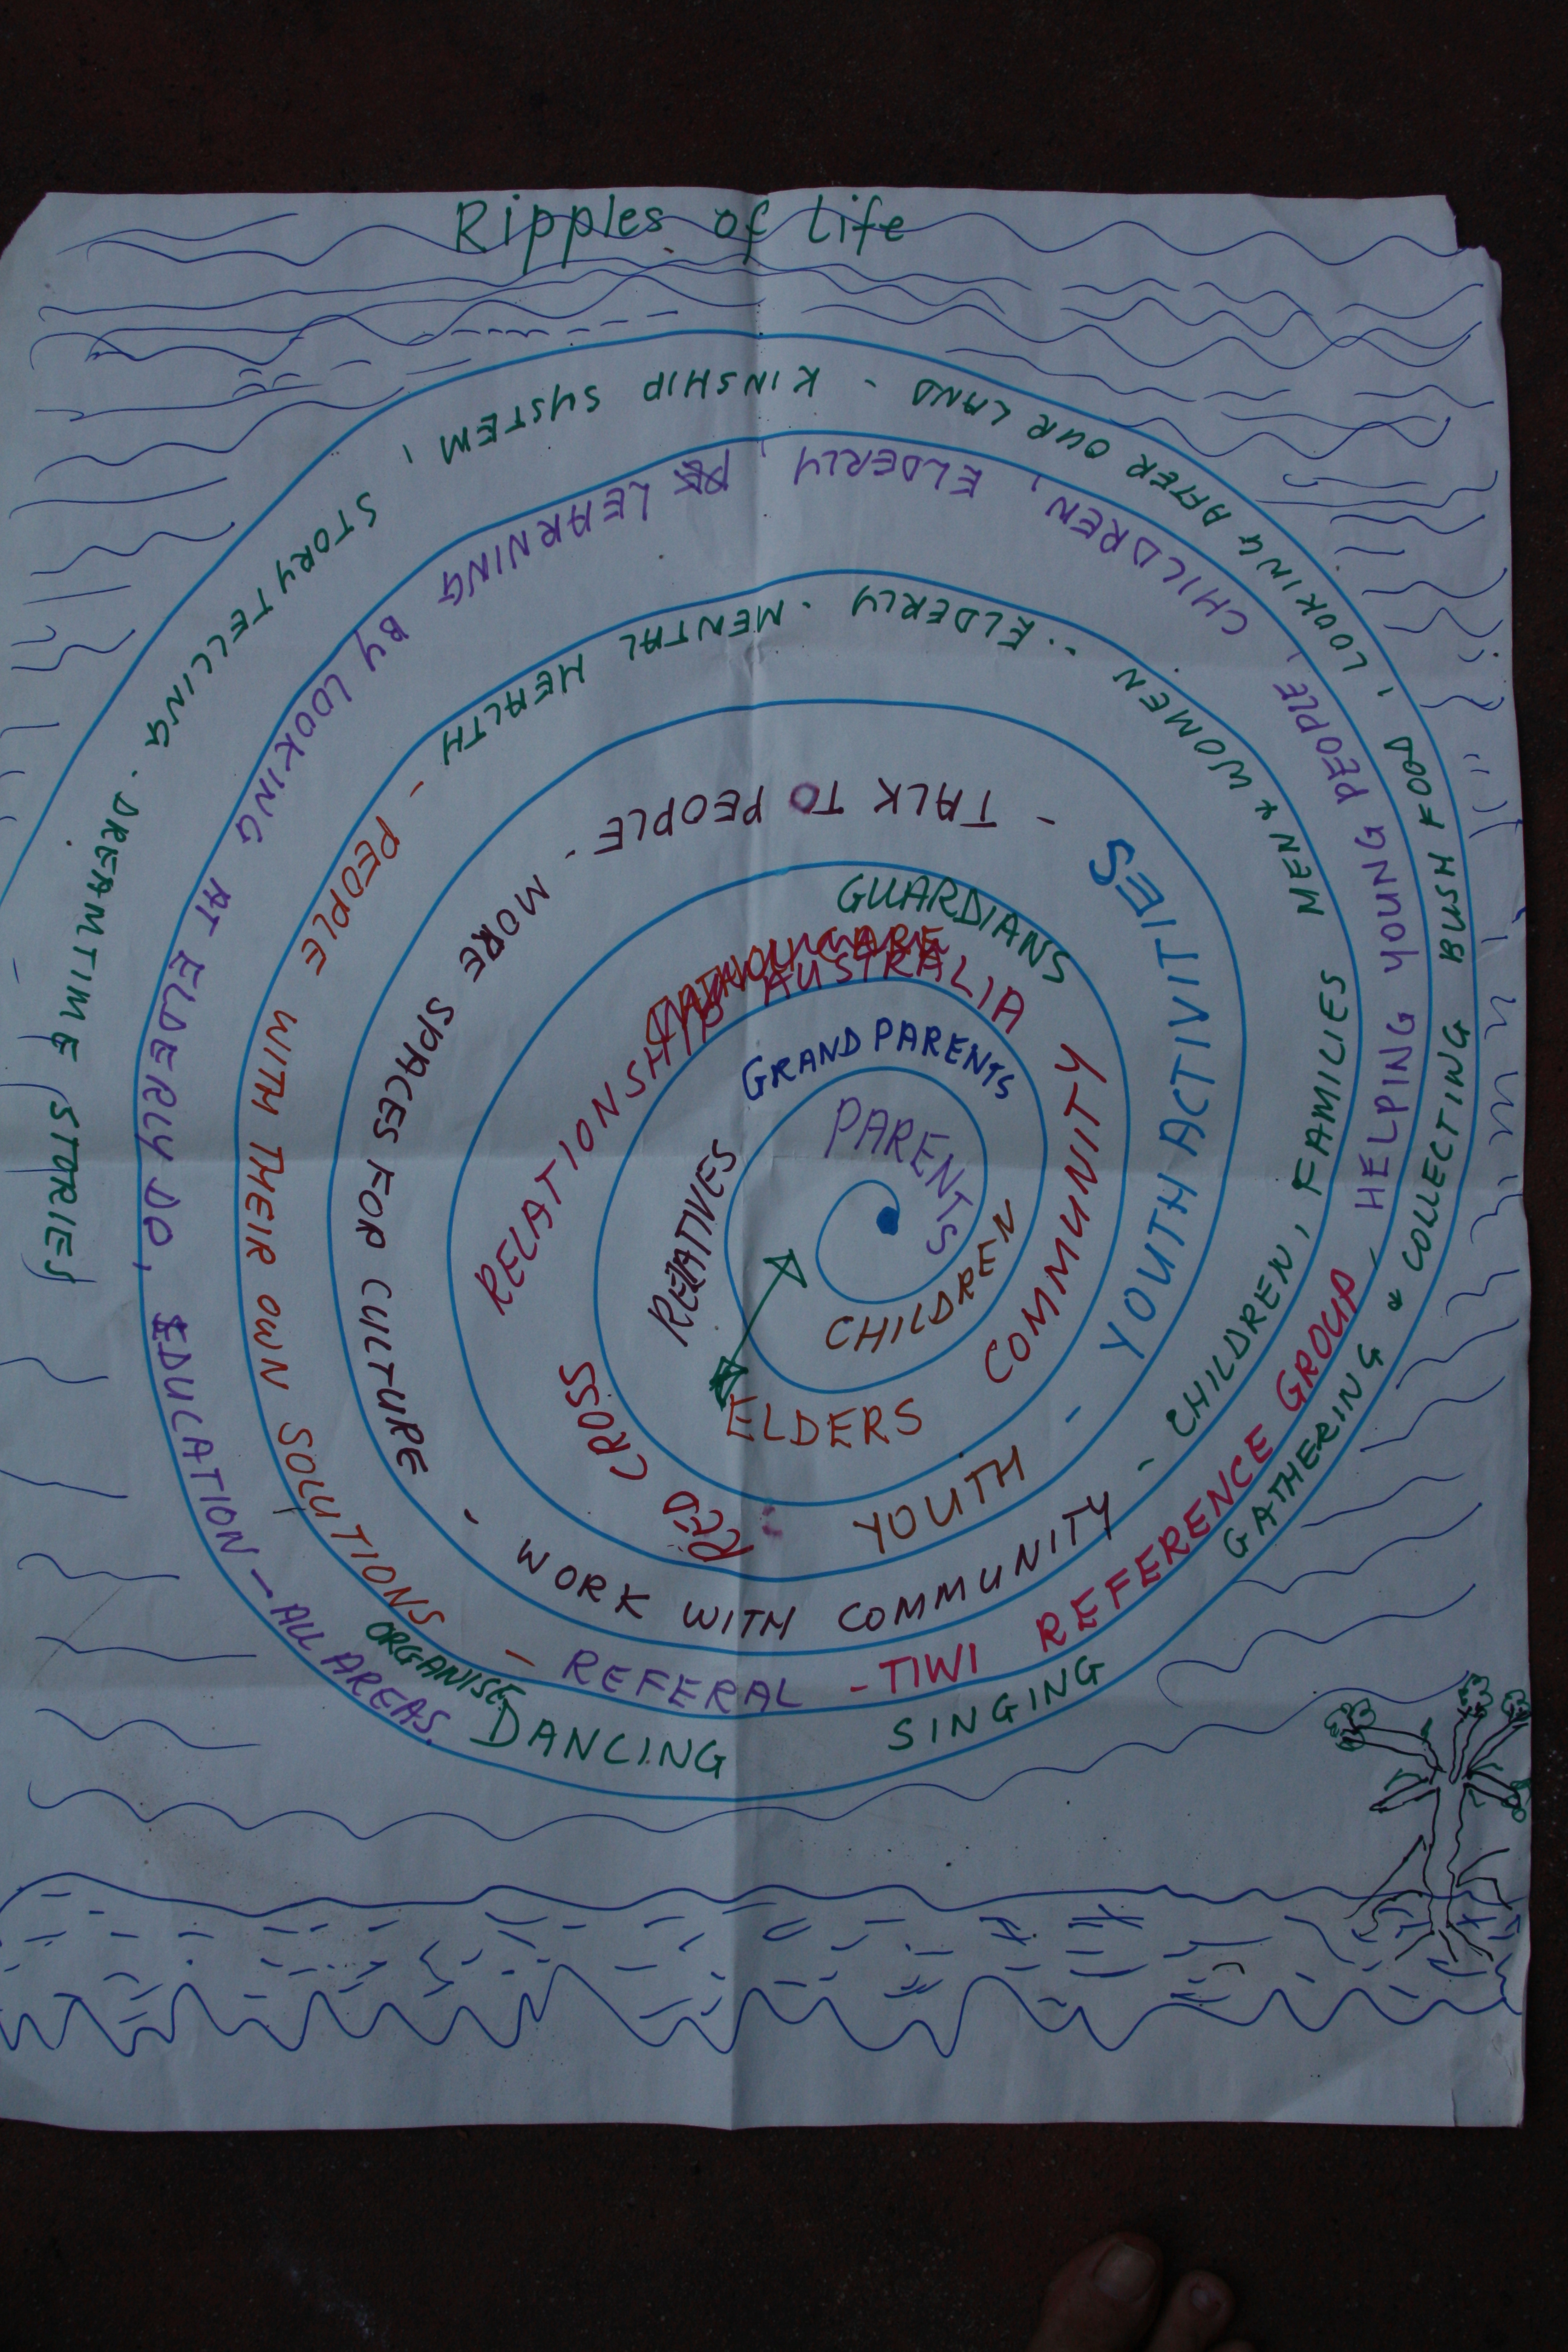 Ripples of Life
PARENTS
CHILDREN
GRANDPARENTS
RELATIVES
ELDERS
COMMUNITY
RELATIONSHIP AUSTRALIA
GUARDIANS
RED CROSS
YOUTH - YOUTH ACTIVITIES
- TALK TO PEOPLE -
MORE SPACES FOR CULTURE
- WORK WITH COMMUNITY
- CHILDREN, FAMILIES
MEN & WOMEN
- ELDERLY - MENTAL HEALTH -
PEOPLE WITH THEIR OWN SOLUTIONS
- REFERAL - TIWI REFERENCE GROUP,
HELPING YOUNG PEOPLE, CHILDREN, ELDERLY, LEARNING BY LOOKING AT ELDERLY DO,
EDUCATION - ALL AREAS.
ORGANISE
DANCING
SINGING
GATHERING & COLLECTING BUSH FOOD, LOOKING AFTER OUR LAND - KINSHIP SYSTEM, STORYTELLING . DREAMTIME STORIES